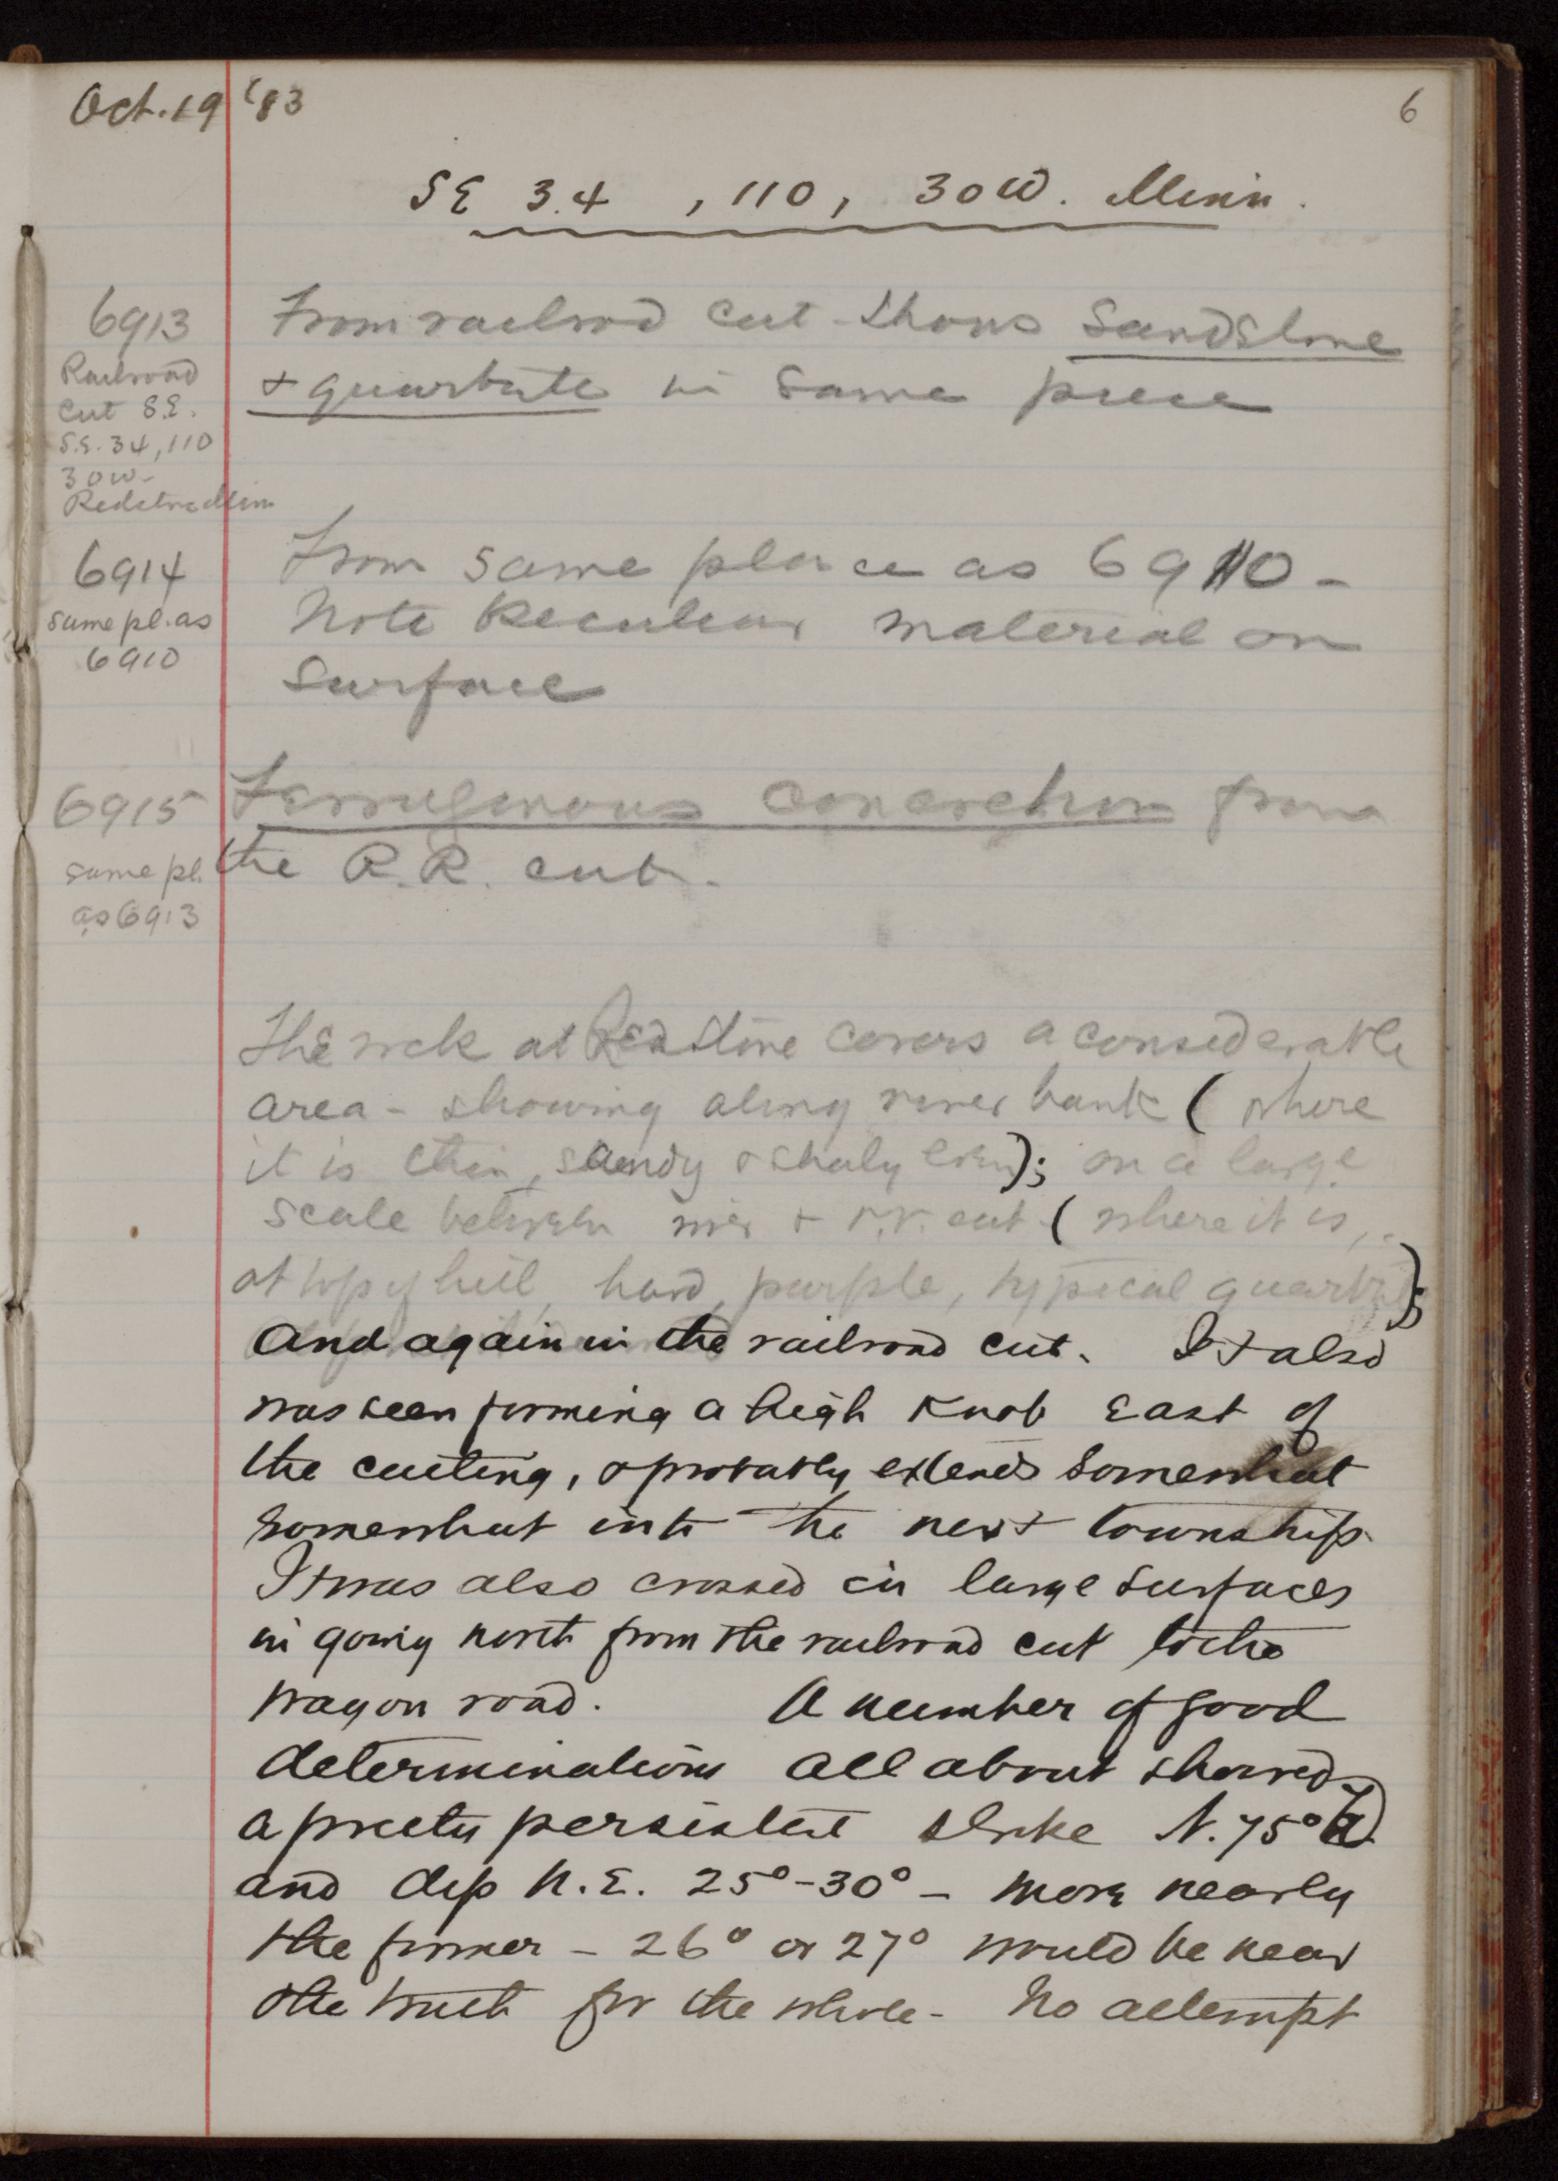 Oct. 19 '83
6
SE 34 , 110, 30W. Minn.
6913
Railroad
Cut S.E.
S.E. 34, 110
30W-
Redstone Minn
From railroad cut - shows Sandstone
+ quartzite in same piece
6914
same pl. as
6910
From same place as 6910 -
Note Peculiar material on
Surface
6915
same pl.
as 6913
Ferruginous concretion from
the R.R. cut.
The rock at Redstone covers a considerable
area - showing along river bank ( where
it is thin, sandy & shaly ); on a large
scale between river & r.r. cut ( where it is,
at top of hill, hard, purple, typical quartzite);
And again in the railroad cut. It also
was seen forming a high knob east of
the cutting, & probably extends somewhat
somewhat into the next township.
It was also crossed in large surfaces
in going north from the railroad cut to the
wagon road. A number of good
determinations all about showed
a pretty persistent strike N. 75°
and dip N.E. 25°-30° - more nearly
the former - 26° or 27° would be near
the truth for the whole - No attempt